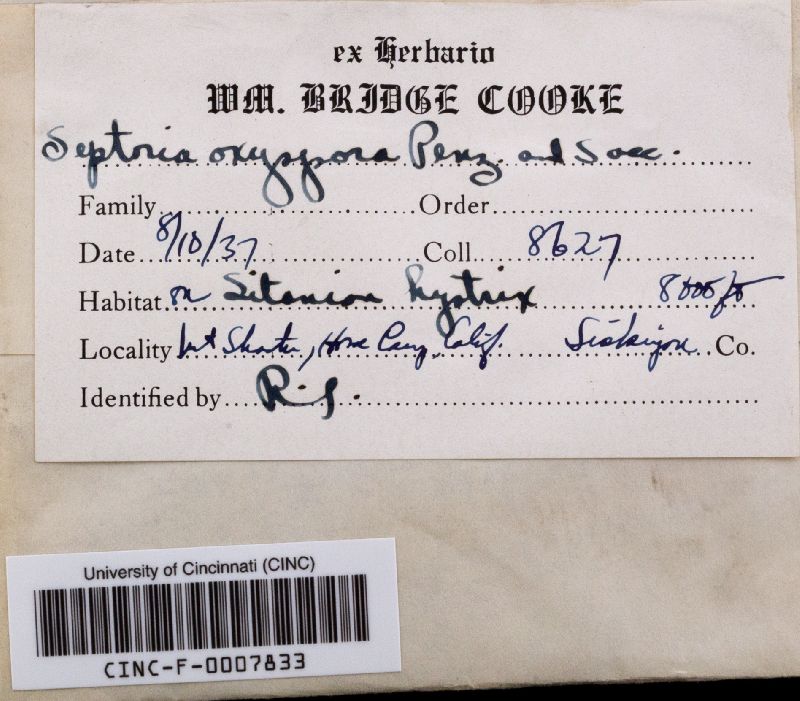 ex Herbario
WM. BRIDGE COOKE
Septoria oxyspora Penz. and Sacc.
Family Order
Date 8/10/37 Coll. 8627
Habitat on Sitanion hystrix 8000 ft
Locality Mt Shasta, Horse Camp, Calif. Siskiyou Co.
Identified by R.S.
University of Cincinnati (CINC)
CINC-F-0007833